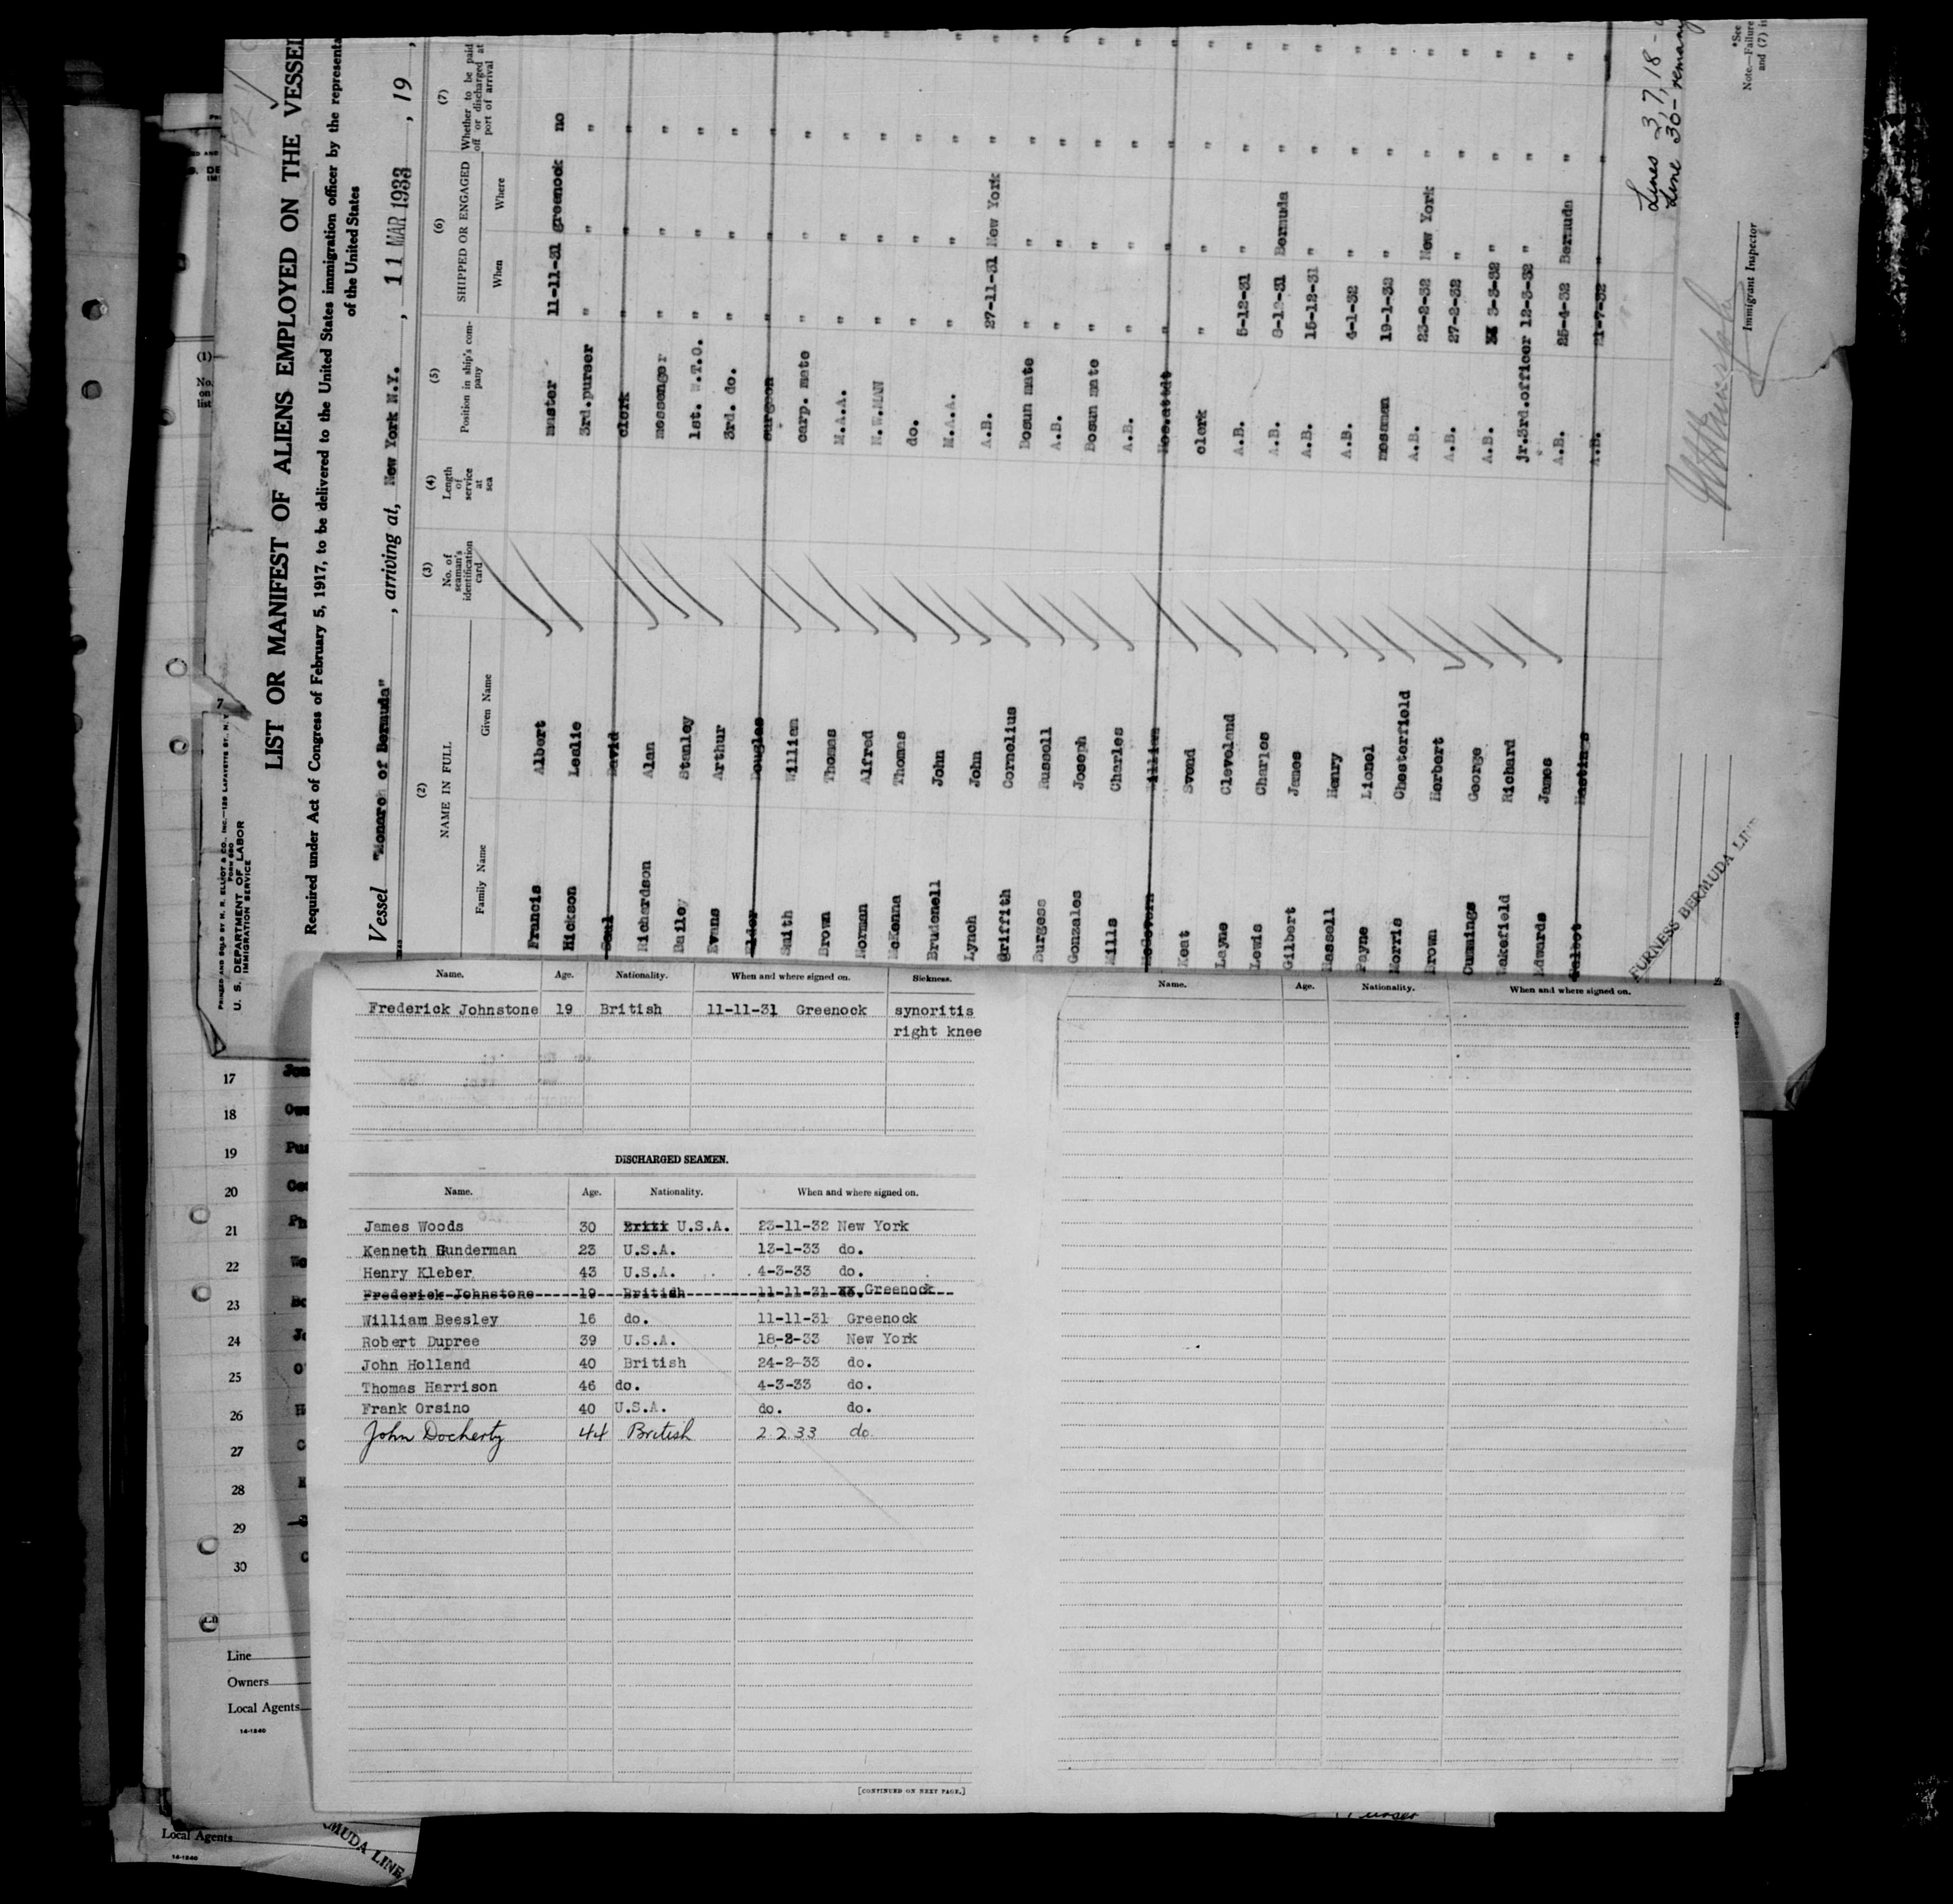 PRINTED AND SOLD BY H. R. ELLIOT & CO., INC.—129 LAFAYETTE ST., N.Y.
FORM 680
U. S. DEPARTMENT OF LABOR
IMMIGRATION SERVICE
LIST OR MANIFEST OF ALIENS EMPLOYED ON THE VESSEL
Required under Act of Congress of February 5, 1917, to be delivered to the United States immigration officer by the representa
of the United States
Vessel "Monarch of Bermuda", arriving at, New York N.Y., 11 MAR 1933, 19
(2) (3) (4) (5) (6) (7)
NAME IN FULL No. of seaman's identification card Length of service at sea Position in ship's company SHIPPED OR ENGAGED Whether to be paid off or discharged at port of arrival
Family Name Given Name When Where
Francis Albert master 11-11-31 greenock no
Hickson Leslie 3rd.purser " " "
Seal David clerk " " "
Richardson Alan messenger " " "
Bailey Stanley 1st. W.T.O. " " "
Evans Arthur 3rd. do. " " "
Elder Douglas surgeon " " "
Smith William carp. mate " " "
Brown Thomas M.A.A. " " "
Norman Alfred N.W.MAN " " "
McKenna Thomas do. " " "
Brudenell John M.A.A. " " "
Lynch John A.B. 27-11-31 New York "
Griffith Cornelius Bosun mate " " "
Burgess Russell A.B. " " "
Gonzales Joseph Bosun mate " " "
Mills Charles A.B. " " "
McGovern William Hos.attdt " " "
Keat Svend clerk " " "
Layne Cleveland A.B. 5-12-31 " "
Lewis Charles A.B. 8-12-31 Bermuda "
Gilbert James A.B. 15-12-31 " "
Hassell Henry A.B. 4-1-32 " "
Payne Lionel mesman 19-1-32 " "
Morris Chesterfield A.B. 23-2-32 New York "
Brown Herbert A.B. 27-2-32 " "
Cummings George A.B. 3-3-32 " "
Wakefield Richard jr.3rd.officer 12-3-32 " "
Edwards James A.B. 25-4-32 Bermuda "
Talbot Hastings A.B. 21-7-32 " "
FURNESS BERMUDA LINE
Immigrant Inspector
Lines 3, 7, 18 -
Line 30 - remang
*See
Note.—Failure
and (7) is
(1)
No.
on
list
17
18
19
20
21
22
23
24
25
26
27
28
29
30
Line
Owners
Local Agents
14-1240
Local Agents
14-1240
MUDA LINE
Purser
Name. Age. Nationality. When and where signed on. Sickness.
Frederick Johnstone 19 British 11-11-31 Greenock synoritis
right knee
DISCHARGED SEAMEN.
Name. Age. Nationality. When and where signed on.
James Woods 30 U.S.A. 23-11-32 New York
Kenneth Gunderman 23 U.S.A. 13-1-33 do.
Henry Kleber 43 U.S.A. 4-3-33 do.
Frederick Johnstone 19 British 11-11-31 Greenock
William Beesley 16 do. 11-11-31 Greenock
Robert Dupree 39 U.S.A. 18-2-33 New York
John Holland 40 British 24-2-33 do.
Thomas Harrison 46 do. 4-3-33 do.
Frank Orsino 40 U.S.A. do. do.
John Docherty 44 British 2 2 33 do
[CONTINUED ON NEXT PAGE.]
Name. Age. Nationality. When and where signed on.